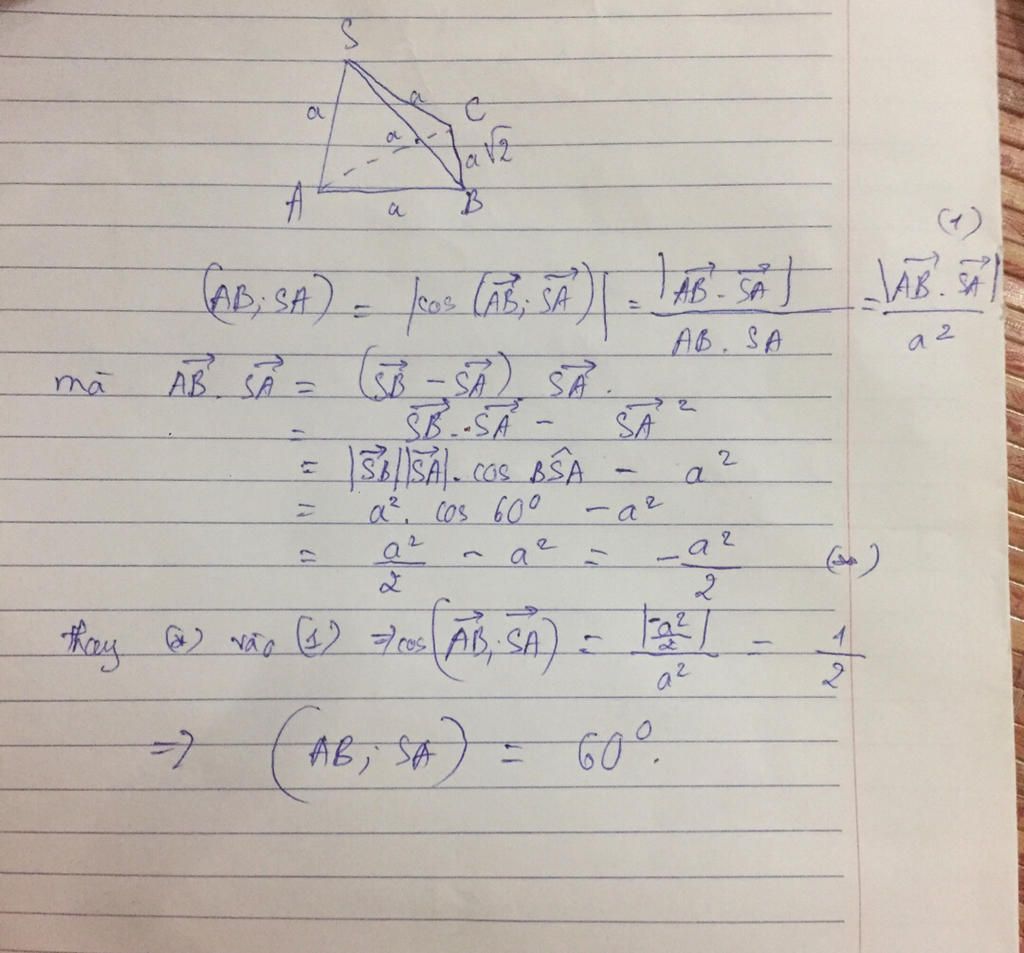 S
a
a
C
a
a√2
A
a
B
(AB; SA) = |cos (→AB; →SA)| = |→AB . →SA| / AB . SA = |→AB . →SA| / a² (1)
mà →AB . →SA = (→SB − →SA) . →SA .
= →SB . →SA − →SA²
= |→SB||→SA| . cos BŜA − a²
= a² . cos 60⁰ − a²
= a²/2 − a² = −a²/2
thay (2) vào (1) ⇒ cos(→AB; →SA) = |−a²/2| / a² = 1/2
⇒ (AB; SA) = 60⁰.